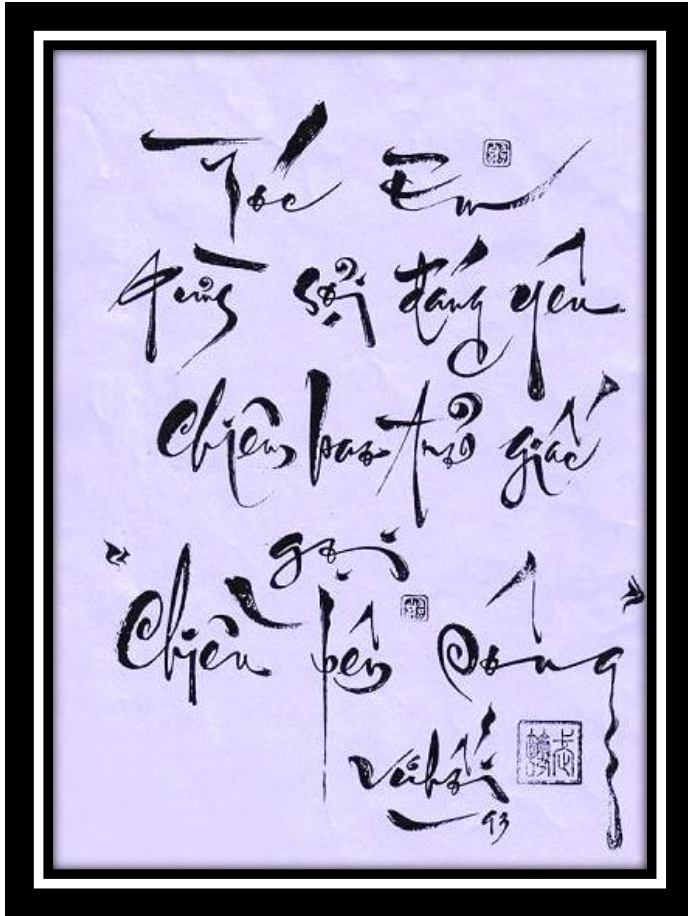 Tóc Em
từng sợi đáng yêu
Chiêm bao trở giấc
gọi
"Chiều bên Sông"
Vũ Hối
93